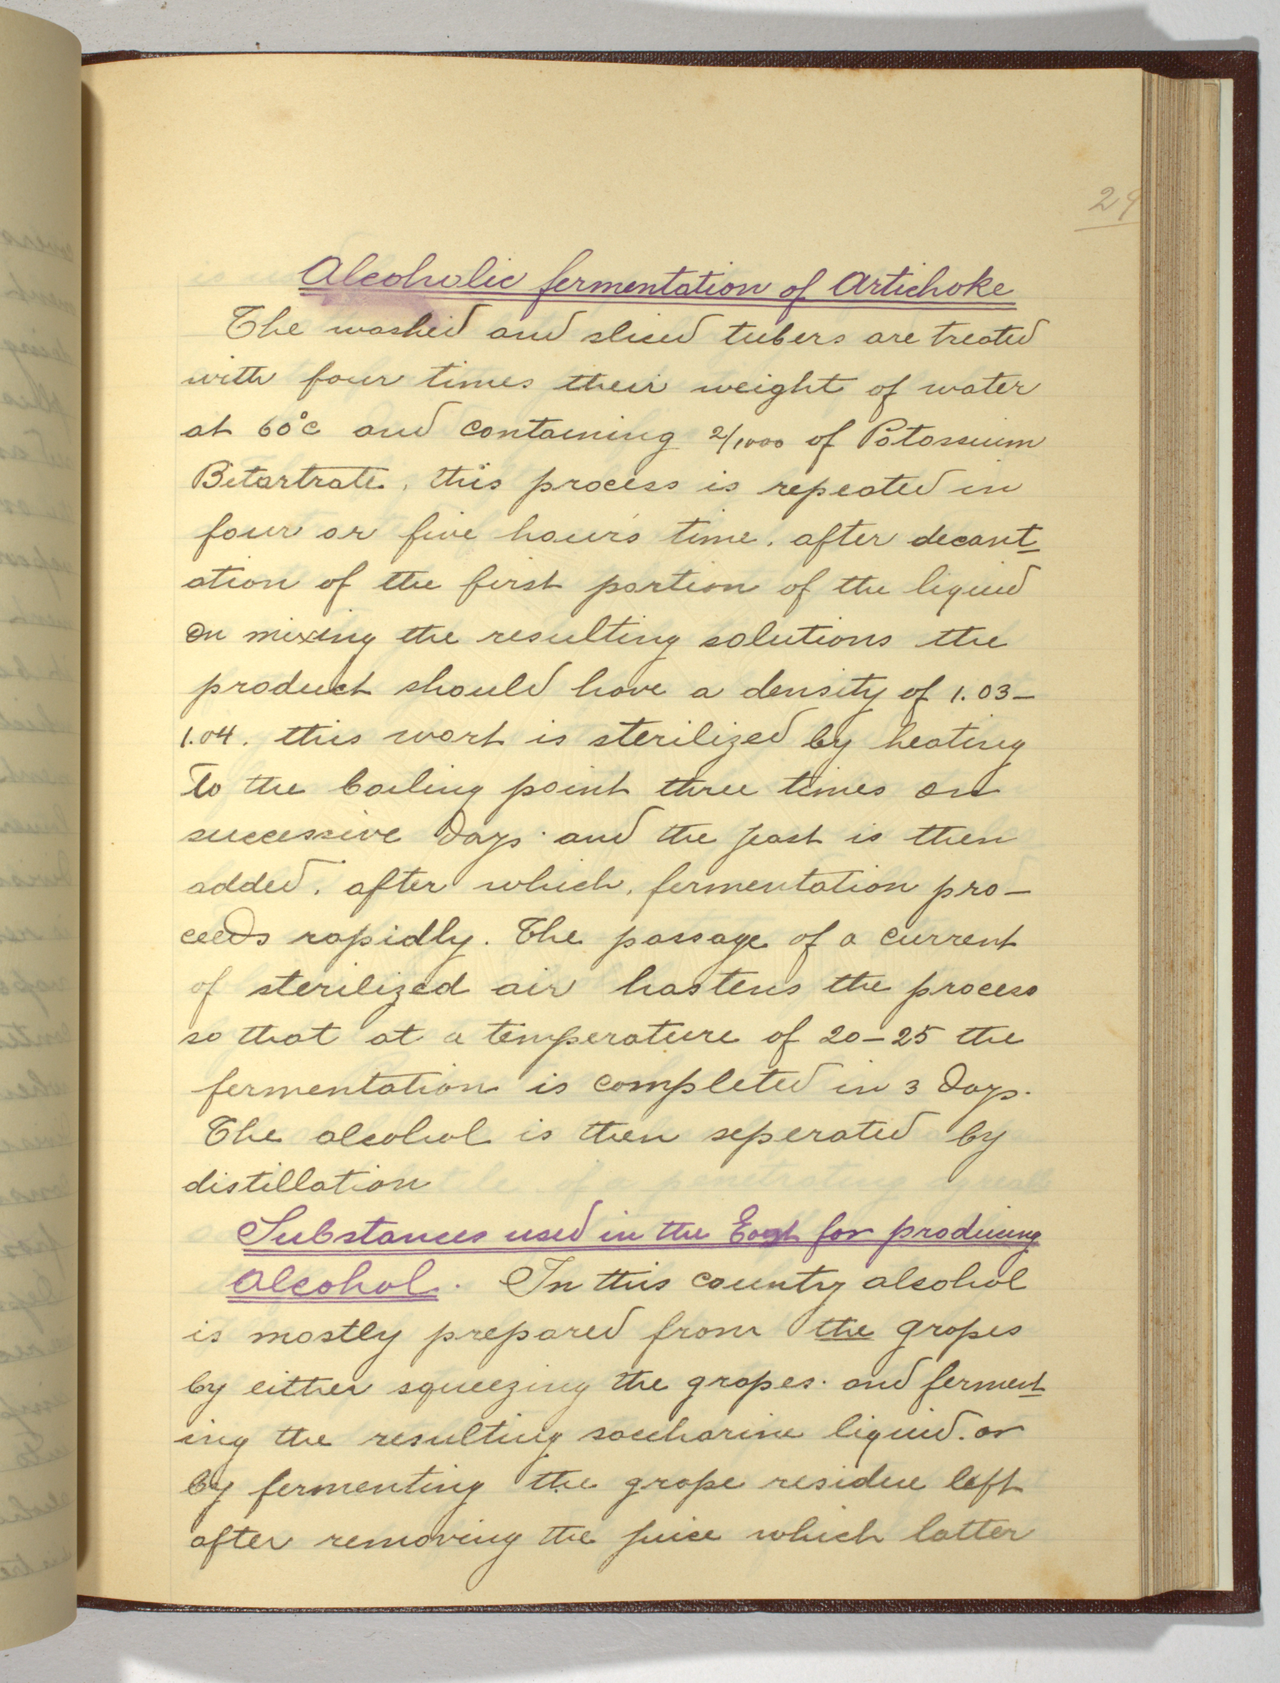 29
Alcoholic fermentation of Artichoke
The washed and sliced tubers are treated
with four times their weight of water
at 60°c and containing 2/1000 of Potassium
Bitartrate, this process is repeated in
four or five hours time, after decant-
ation of the first portion of the liquid
On mixing the resulting solutions the
product should have a density of 1.03-
1.04. this wort is sterilized by heating
To the boiling point three times on
successive days. and the yeast is then
added, after which, fermentation pro-
ceeds rapidly. The passage of a current
of sterilized air hastens the process
so that at a temperature of 20-25 the
fermentation is completed in 3 days.
The alcohol is then seperated by
distillation
Substances used in the East for producing
Alcohol. In this country alcohol
is mostly prepared from the grapes
by either squeezing the grapes. and ferment-
ing the resulting saccharine liquid. or
by fermenting the grape residue left
after removing the juice which latter